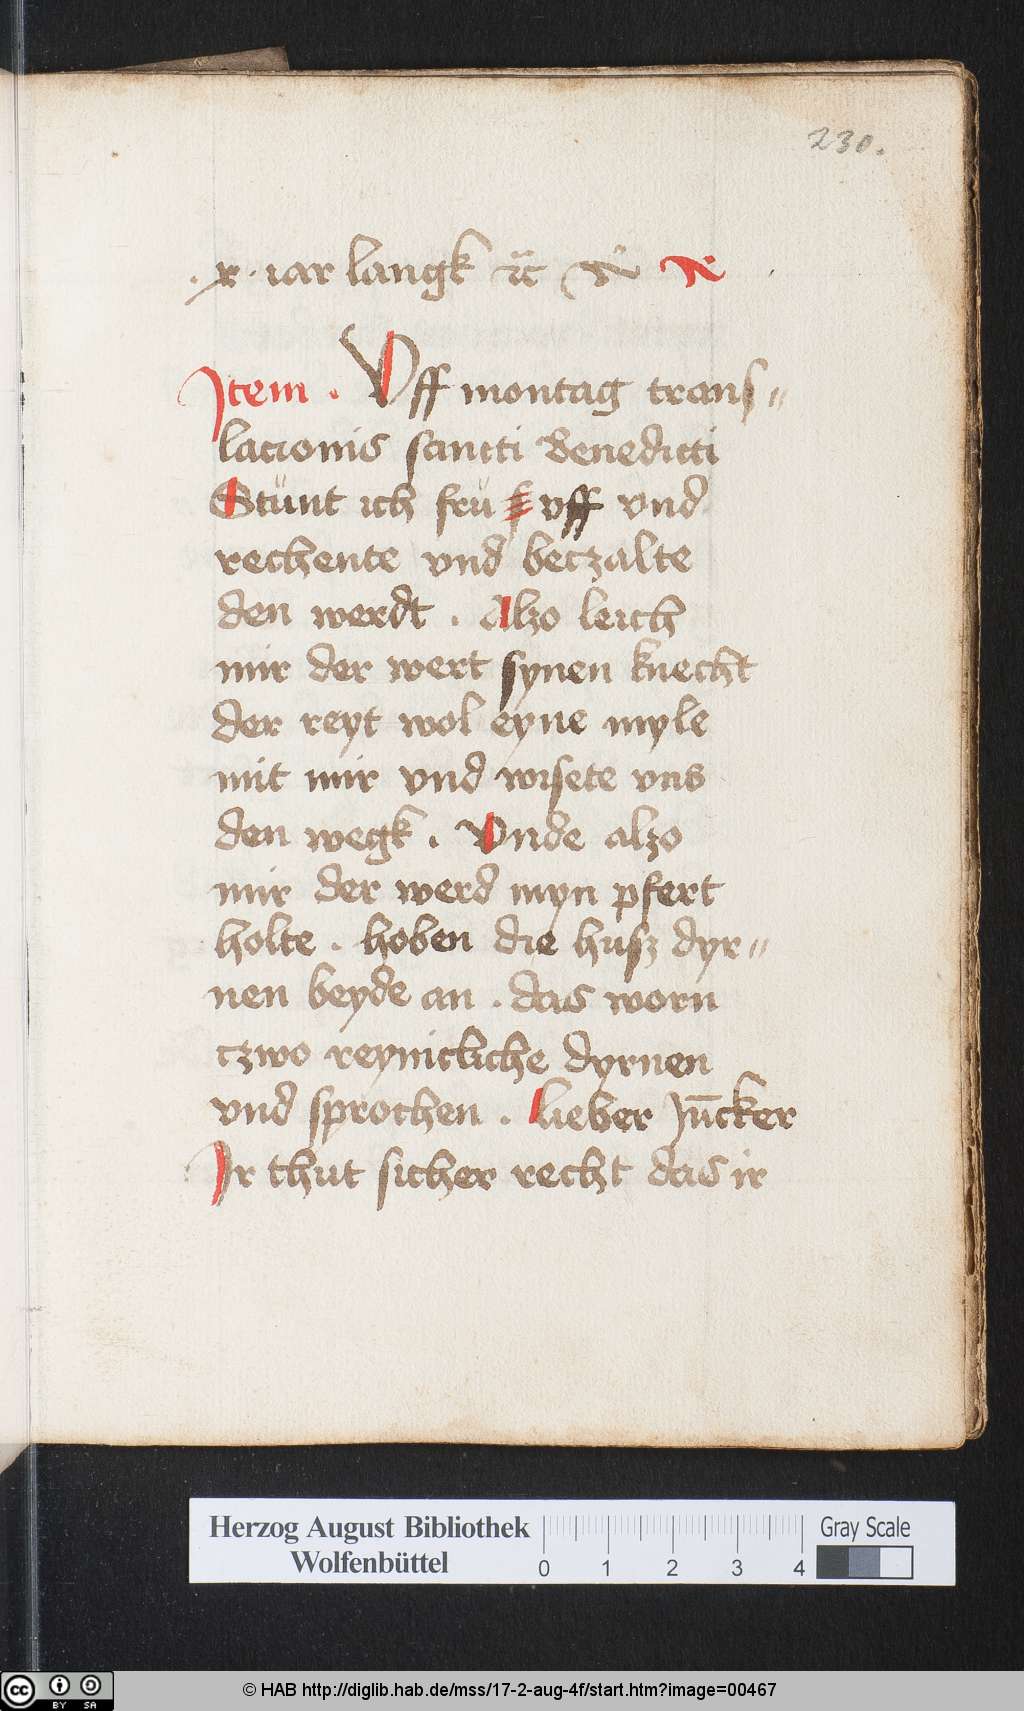 230.
.x. iar langk
Item . Vff montag trans〃
lacionis sancti Benedicti
Stünt ich frü vff vnd
rechente vnd beczalte
den werdt . Alzo leich
mir der wert synen knecht
der reyt wol eyne myle
mit mir vnd wisete vns
den wegk . Vnde alzo
mir der werd myn pfert
holte . hoben die husz dyr〃
nen beyde an . das worn
czwo reynickliche dyrnen
vnd sprochen . lieber Jūcker
Ir thut sicher recht das ir
Herzog August Bibliothek
Wolfenbüttel
0 1 2 3 4
Gray Scale
cc BY SA
© HAB http://diglib.hab.de/mss/17-2-aug-4f/start.htm?image=00467